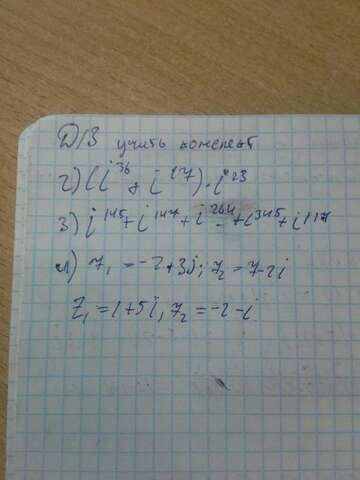 Д/З учить конспект
2) (i³⁶ + i¹⁷) · i²³
3) i¹⁴⁵ + i¹⁴⁷ + i²⁶⁴ + i³⁴⁵ + i¹¹⁷
4) z₁ = -2 + 3i; z₂ = 7 - 2i
z₁ = 1 + 5i, z₂ = -2 - i